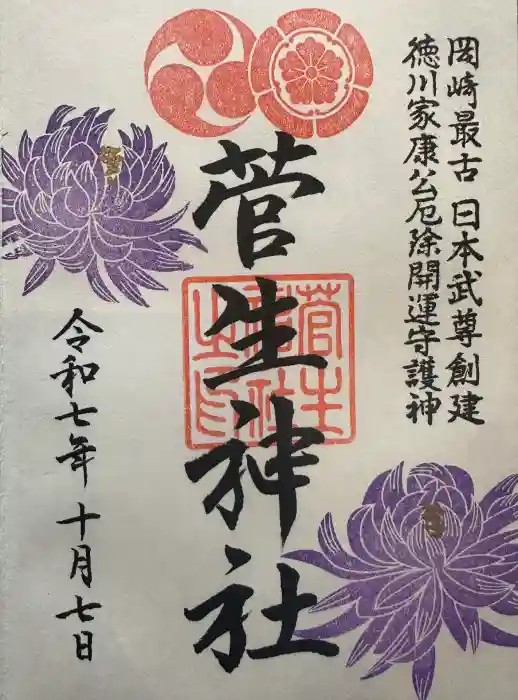 岡崎最古 日本武尊創建
徳川家康公厄除開運守護神
菅生神社
菅生
神社
之印
令和七年 十月七日